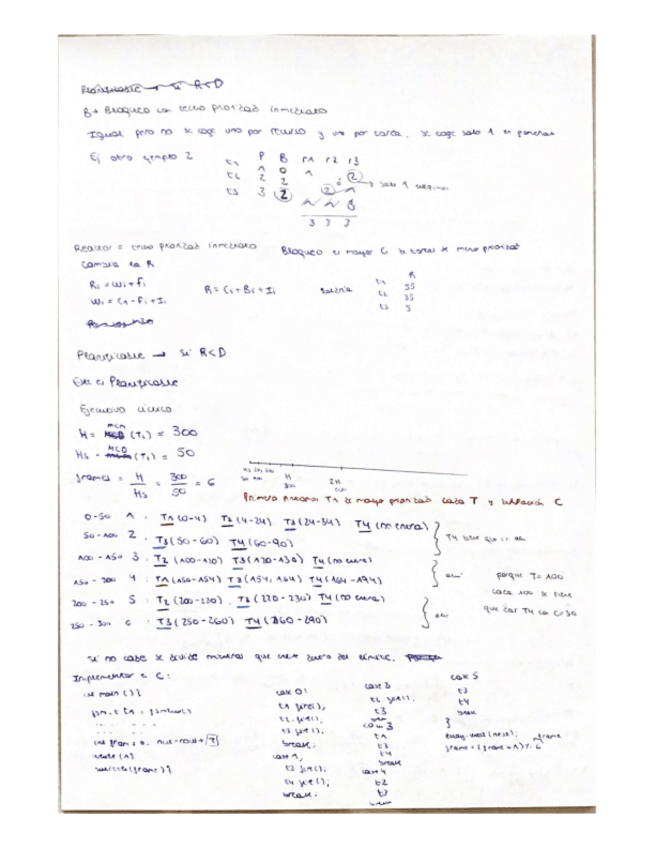 Planificable → si R<D
B → Bloqueo con techo prioridad inmediato
Igual pero no se coge uno por recurso y uno por tarea, se coge solo 1 en general
Ej otro ejemplo 2
P B r1 r2 r3
t1 1 0 1
t2 2 2 ó 2 → solo 1
t3 3 2 2 1
3 3 3
techo prioridad inmediato
Bloqueo es mayor C de tareas de menor prioridad
Cambia la R
Ri = wi + fi
Wi = Ci - fi + Ii
R = Ci + Bi + Ii
R
t1 35
t2 35
t3 5
Planificable → si R<D
Este es Planificable
Ejecutivo cíclico
H = MCM (Ti) = 300
Hs = MCD (Ti) = 50
frames = H / Hs = 300 / 50 = 6
H 2H
Primero ponemos T1 de mayor prioridad cada T y duración C
0-50 1 : T1 (0-4) T2 (4-24) T3 (24-34) T4 (no entra)
50-100 2 : T3 (50-60) T4 (60-90)
100-150 3 : T2 (100-120) T3 (120-130) T4 (no entra)
150-200 4 : T1 (150-154) T3 (154, 164) T4 (164-194)
200-250 5 : T2 (200-220) , T3 (220-230) T4 (no entra)
250-300 6 : T3 (250-260) T4 (260-290)
T4 tiene que ir
porque T=100
cada 100 se tiene
que dar T4 con C=30
si no cabe se divide mientras que entre dentro del límite.
Implementar en C:
int main () {
int frame = 0;
while (1)
switch (frame) {
case 0:
t1.fire();
t2.fire();
t3.fire();
break;
case 1,
t3.fire();
t4.fire();
break;
case 2
t2.fire();
t3
case 3
t1
t3
t4
break
case 4
t2
t3
case 5
t3
t4
break
}
frame = (frame + 1) % 6